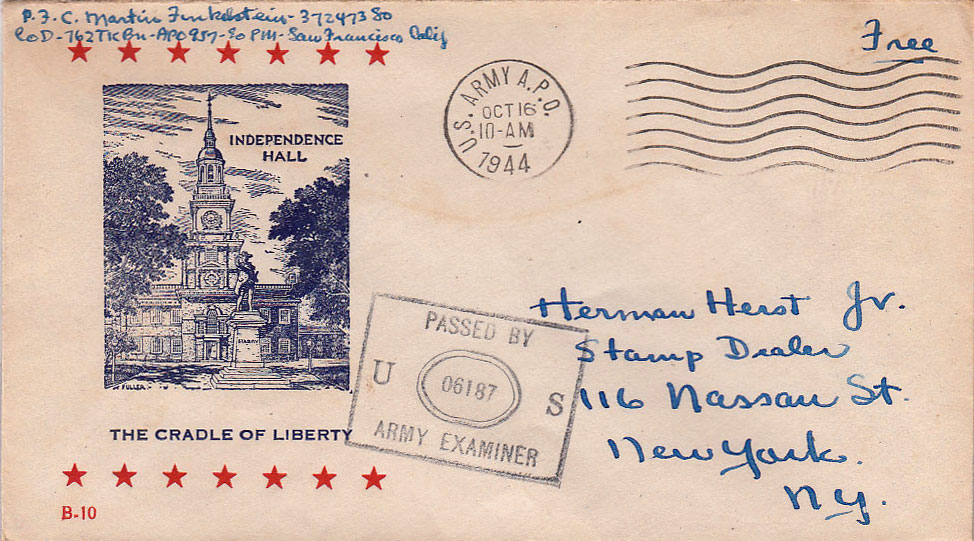 P.F.C. Martin Finkelstein - 37247380
Co D - 762 TK Bn - APO 957 - % PM - San Francisco Calif
Free
U.S. ARMY A.P.O.
OCT 16
10-AM
1944
INDEPENDENCE
HALL
BARRY
FULLER
THE CRADLE OF LIBERTY
B-10
PASSED BY
U 06187 S
ARMY EXAMINER
Herman Herst Jr.
Stamp Dealer
116 Nassau St.
New York.
N.Y.